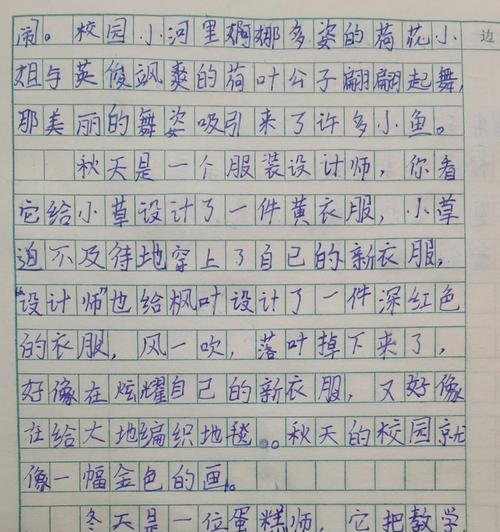 闹。校园小河里婀娜多姿的荷花小
姐与英俊飒爽的荷叶公子翩翩起舞,
那美丽的舞姿吸引来了许多小鱼。
秋天是一个服装设计师,你看
它给小草设计了一件黄衣服,小草
迫不及待地穿上了自己的新衣服,
“设计师”也给枫叶设计了一件深红色
的衣服,风一吹,落叶掉下来了,
好像在炫耀自己的新衣服,又好像
在给大地编织地毯。秋天的校园就
像一幅金色的画。
冬天是一位蛋糕师,它把教学
边